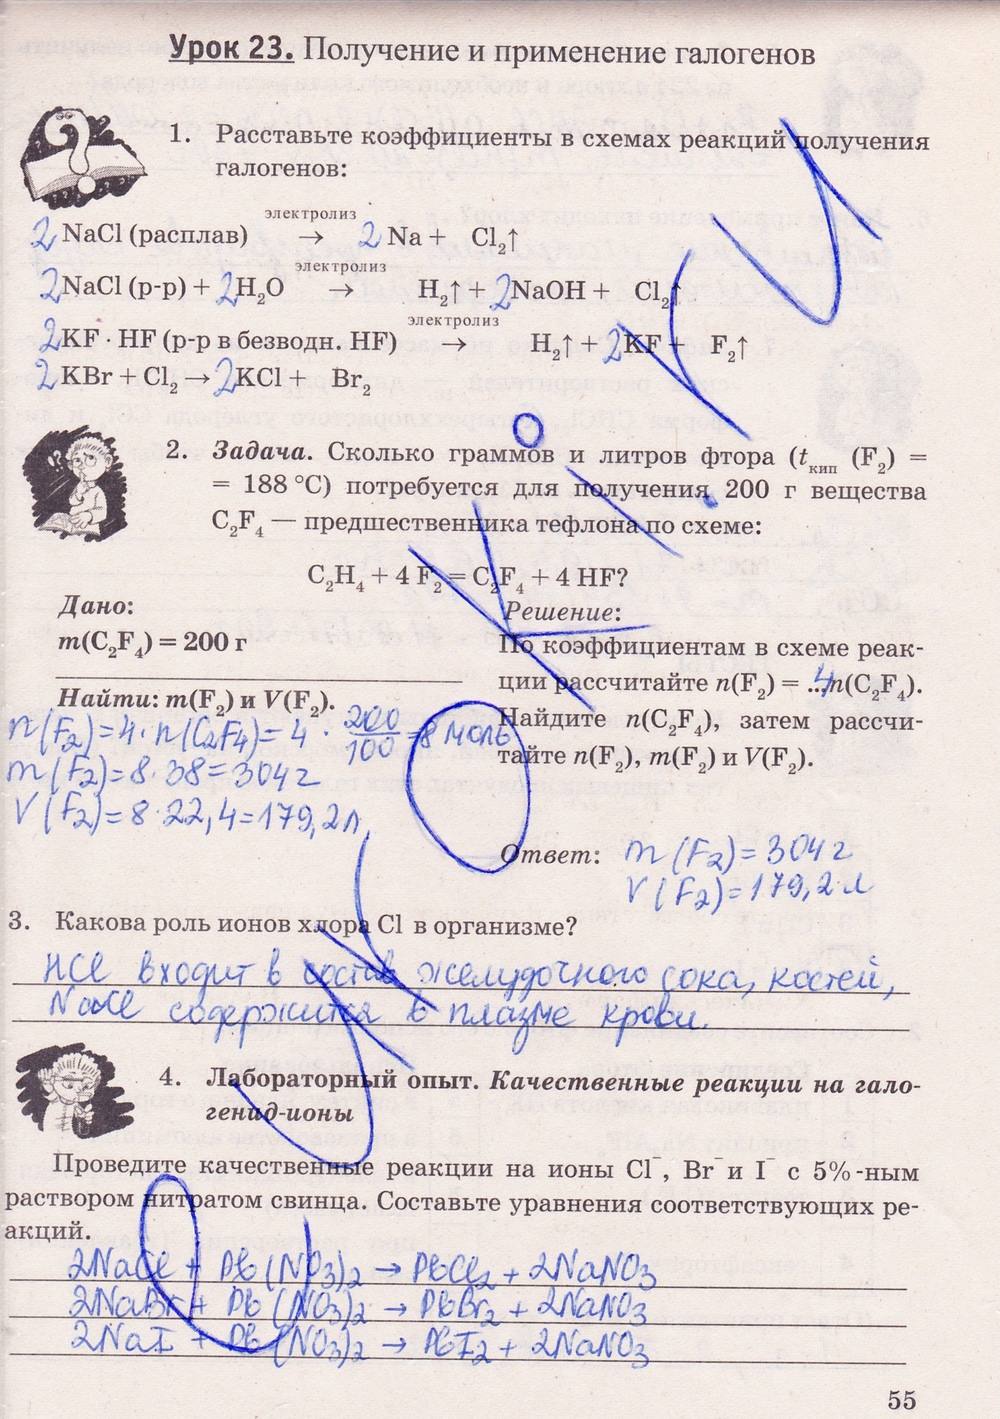 Урок 23. Получение и применение галогенов
1. Расставьте коэффициенты в схемах реакций получения
галогенов:
2 NaCl (расплав) электролиз → 2 Na + Cl₂↑
2NaCl (р-р) + 2H₂O электролиз → H₂↑ + 2NaOH + Cl₂↑
2KF · HF (р-р в безводн. HF) электролиз → H₂↑ + 2KF + F₂↑
2KBr + Cl₂ → 2KCl + Br₂
2. Задача. Сколько граммов и литров фтора (tкип (F₂) =
= 188 °C) потребуется для получения 200 г вещества
C₂F₄ — предшественника тефлона по схеме:
C₂H₄ + 4 F₂ = C₂F₄ + 4 HF?
Дано:
m(C₂F₄) = 200 г
Найти: m(F₂) и V(F₂).
n(F₂)=4·n(C₂F₄)=4·200/100=8 моль
m(F₂)=8·38=304 г
V(F₂)=8·22,4=179,2 л,
Решение:
По коэффициентам в схеме реак-
ции рассчитайте n(F₂) = ..4.n(C₂F₄).
Найдите n(C₂F₄), затем рассчи-
тайте n(F₂), m(F₂) и V(F₂).
Ответ: m(F₂)=304 г
V(F₂)=179,2 л
3. Какова роль ионов хлора Cl в организме?
HCl входит в состав желудочного сока, костей,
NaCl содержится в плазме крови.
4. Лабораторный опыт. Качественные реакции на гало-
генид-ионы
Проведите качественные реакции на ионы Cl⁻, Br⁻ и I⁻ с 5%-ным
раствором нитратом свинца. Составьте уравнения соответствующих ре-
акций.
2NaCl + Pb(NO₃)₂ → PbCl₂ + 2NaNO₃
2NaBr + Pb(NO₃)₂ → PbBr₂ + 2NaNO₃
2NaI + Pb(NO₃)₂ → PbI₂ + 2NaNO₃
55